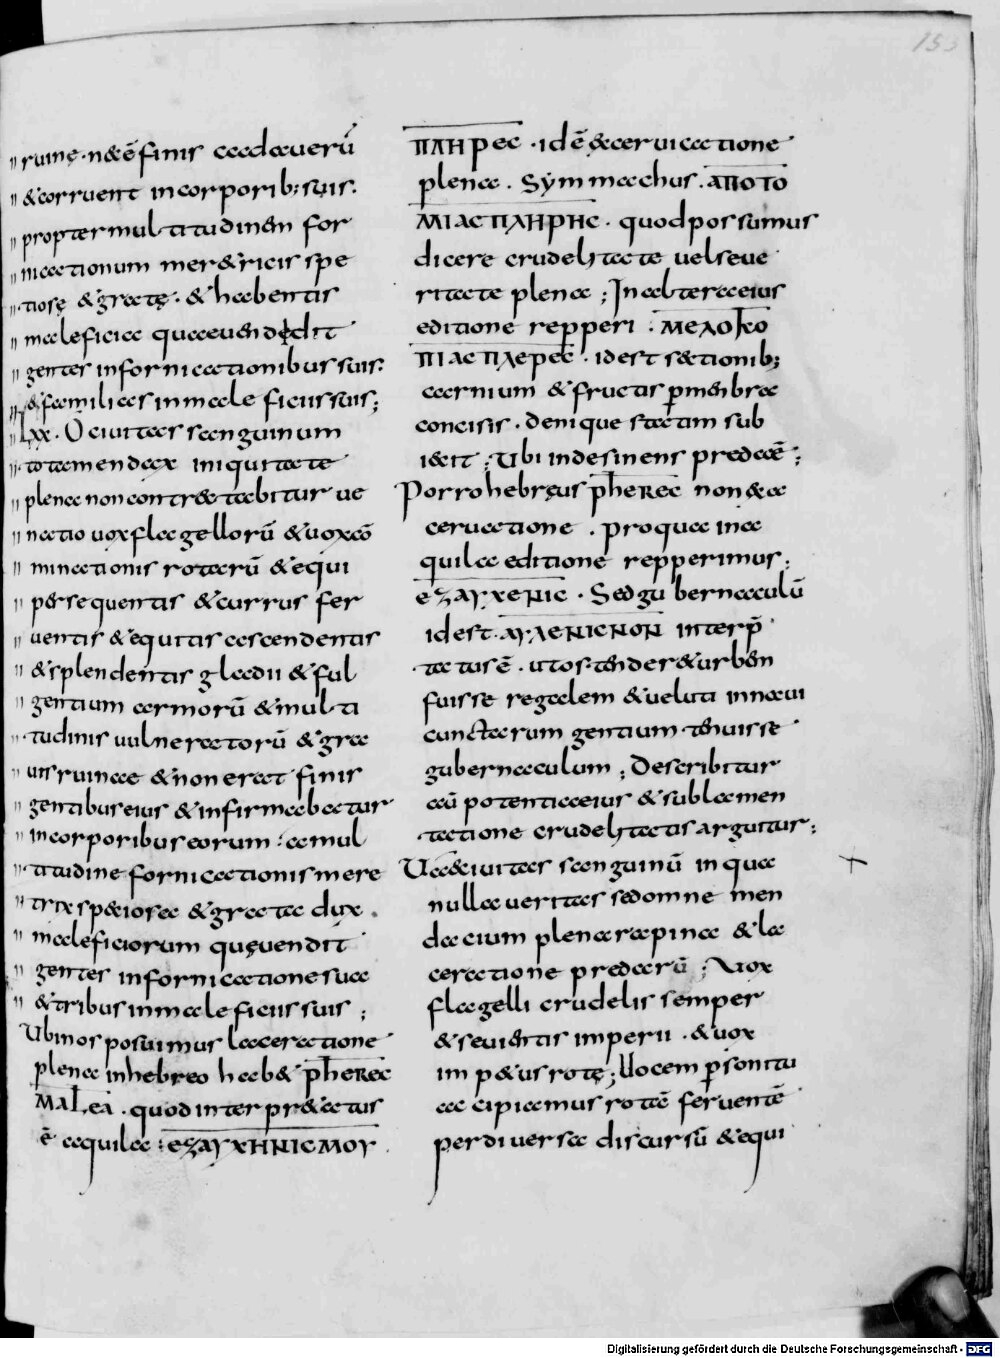 153
ruinę · n&ē finis cadauerū
& corruent in corporib: suis.
propter multitudin&n for
nicationum mer&ricis spe
tiosę & gratę · & habentis
maleficia quæ uendedit
gentes in fornicationibus suis:
& familias in maleficiis suis;
Lxx · O ciuitas sanguinum
tota mendax iniquitate
plena non contr&tabitur ue
natio uox flagellorū & uox cō
minationis rotarū & equi
p&rsequentis & currus fer
uentis & equitis ascendentis
& splendentis gladii & ful
gentium armorū & multi
tudinis uulneratorū & gra
uis ruinae & non erat finis
gentibus eius & infirmabatur
in corporibus eorum · a mul
titudine fornicationis mere
trix sp&iosa & grata dux ·
maleficiorum quę uendit
gentes in fornicatione sua
& tribus in maleficiis suis ;
Ubi nos posuimus laceratione
plena in hebreo hab& PhEREC
MALEA · quod interpr&atus
ē aquila : ΕΞΑΥΧΗΝΙCΜΟΥ
ΠΛΗΡΕC · id ē &ceruicatione
plena . Symmachus . ΑΠΟΤΟ
ΜΙΑC ΠΛΗΡΗC · quod possumus
dicere crudelitate uel seue
ritate plena ; In altera eius
editione repperi : ΜΕΛΟΚΟ
ΠΙΑC ΠΛΕΡΕC · id est s&tionib;
carnium & frustis p m&nbra
concisis · denique statim sub
iacit ; Ubi indesinens predaē ;
Porro hebręus PhEREC non &a
ceruatione . pro qua in a
quila editione repperimus ;
ΕΞΑΥΧΕΝΙC · Sed gubernaculū
id est · ΑΥΛΕΝΙCΝΟΝ interp̄
tatus ē · ut ostender& urb&n
fuisse regalem & uelut in naui
cunctarum gentium tenuisse
gubernaculum ; Describitur
aū potentia eius & sub lamen
tatione crudelitatis arguitur ;
Uae ciuitas sanguinū in qua
nulla ueritas sed omne men
dacium plena rapina & la
ceratione predarū ; Uox
flagelli crudelis semper
& seuientis imperii · & uox
imp&us rotę ; Uocem p sonitu
accipiamus rotae feruentē
per diuersa discursū & equi
Digitalisierung gefördert durch die Deutsche Forschungsgemeinschaft · DFG